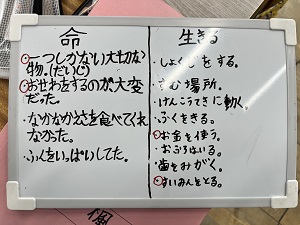 命
・一つしかない大切な
物。(だいじ)
・おせわをするのが大変
だった。
・なかなかえさを食べてくれ
なかった。
・ふんをいっぱいしてた。
生きる
・しょくじをする。
・すむ場所。
・けんこうてきに動く。
・ふくをきる。
・お金を使う。
・おふろはいる。
・歯をみがく。
・すいみんをとる。